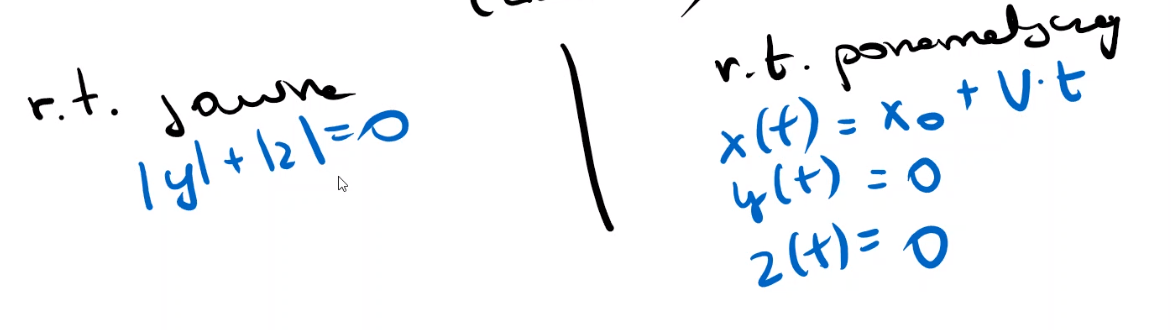 r.t. jawne
|y| + |z| = 0
r.t. parametryczny
x(t) = x₀ + V·t
y(t) = 0
z(t) = 0